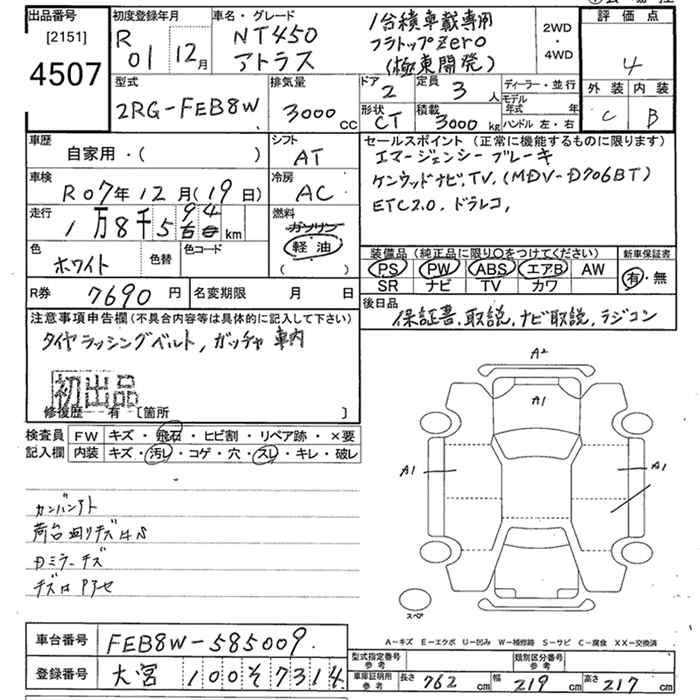 出品番号 初度登録年月 車名・グレード 評価点
[2151]
4507
R 01 12月
NT450
アトラス
1台積車載専用
フラトップZero
(極東開発)
2WD
・
4WD
4
外装 内装
C B
型式 排気量 ドア 定員 ディーラー・並行
2RG-FEB8W 3000cc 2 3人
モデル年式 年
形状 積載 ハンドル 左・右
CT 3000kg
車歴 シフト セールスポイント(正常に機能するものに限ります)
自家用・( ) AT
エマージェンシーブレーキ
車検 冷房
R07年12月(19日) AC
ケンウッドナビ,TV,(MDV-D706BT)
ETC2.0, ドラレコ,
走行 燃料
1万8千594km
ガソリン
軽油
( )
色 色替 色コード
ホワイト
装備品(純正品に限り○をつけてください) 新車保証書
PS PW ABS エアB AW
SR ナビ TV カワ
有・無
R券 7690円 名変期限 月 日
後日品
保証書,取説,ナビ取説,ラジコン
注意事項申告欄(不具合内容等は具体的に記入して下さい)
タイヤラッシングベルト,ガッチャ 車内
初出品
修復歴 有 [箇所 ]
検査員 FW キズ・飛石・ヒビ割・リペア跡・×要
記入欄 内装 キズ・汚レ・コゲ・穴・スレ・キレ・破レ
A2
A1
A1
A1
カンバンアト
荷台回りキズ
カミラーキズ
スペア
A-キズ E-エクボ U-凹み W-補修跡 S-サビ C-腐食 XX-交換済
車台番号 FEB8W-585009.
登録番号 大宮 100そ7314
型式指定番号 参考 類別区分番号 参考
車庫証明用 参考 長さ 762cm 幅 219cm 高さ 217cm